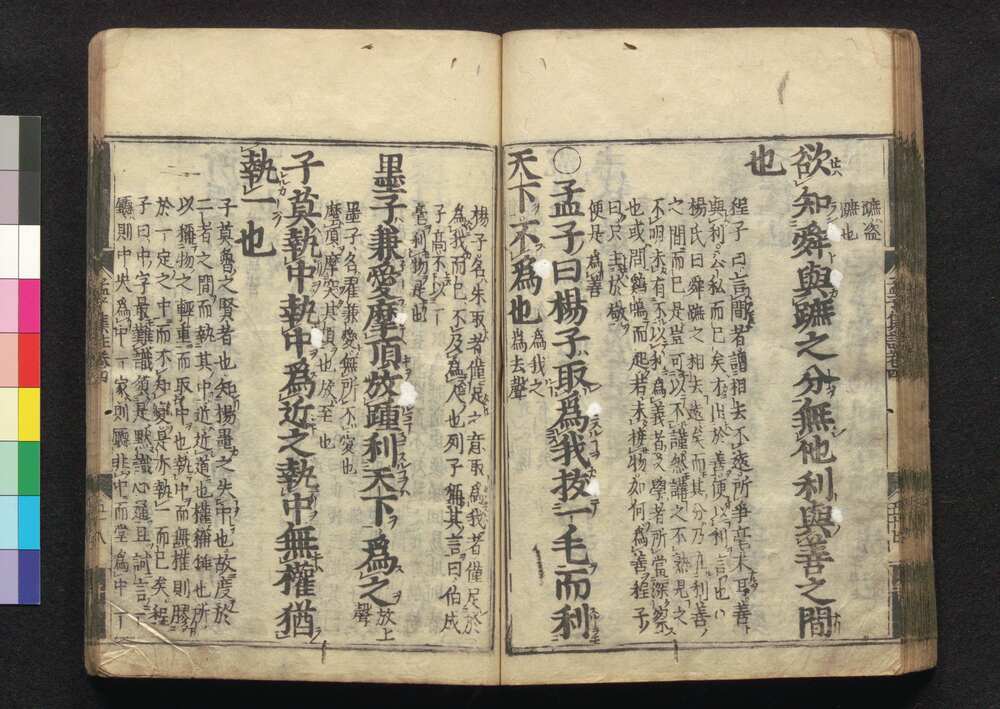 蹠盗
蹠也
欲知舜與蹠之分無他利與善之間
也
程子曰言間者謂相去不遠所爭毫末耳善
與利公私而已矣才出於善便以利言也○
楊氏曰舜蹠之相去遠矣而其分乃在利善
之間而已是豈可以不謹然講之不熟見之
不明未有不以利為義者又學者所當深察
也或問雞鳴而起若未接物如何為善程子
曰只主於敬
便是為善
○孟子曰楊子取為我拔一毛而利
天下不為也
為我之
為去聲
楊子名朱取者僅足之意取為我者僅足於
為我而已不及為人也列子稱其言曰伯成
子高不以一
毫利物是也
墨子兼愛摩頂放踵利天下為之
放上
聲
墨子名翟兼愛無所不愛也
摩頂摩突其頂也放至也
子莫執中執中為近之執中無權猶
執一也
子莫魯之賢者也知楊墨之失中也故度於
二者之間而執其中近近道也權稱錘也所
以稱物之輕重而取中也執中而無權則膠
於一定之中而不知變是亦執一而已矣程
子曰中字最難識須是默識心通且試言一
廳則中央為中一家則廳非中而堂為中一